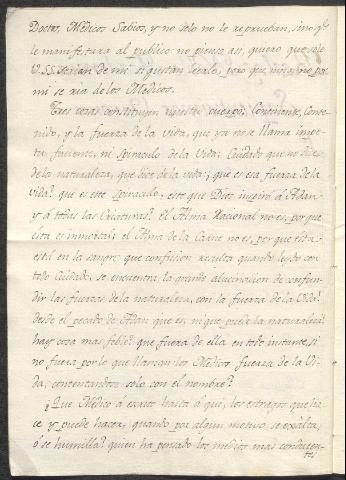 Doctos, Médicos Sabios, y no solo no le reprueban, sino qᵉ
le manifiestan al publico: no pienso así, quiero que solo
V.SS. se rian de mi si gustan leerlo, pero que ninguno por
mi se ria de los Medicos.
Tres cosas constituyen nuestro cuerpo, Continente, Conte-
nido, y la fuerza de la Vida, que ya no se llama impe-
tu faciente, ni Spiraculo de la Vida: Cuidado que no dice
de la naturaleza, que dice de la vida; que es esa fuerza de la
vida? que es este Spiraculo, este que Dios inspiró á Adan
y á todas las Criaturas? el Alma Racional no es, por que
esta es inmortal; el Alma de la Carne no es, por que esta
está en la sangre: que confusion resulta quando leydo con
todo cuidado, se encuentra la grande alucinacion de confun-
dir las fuerzas de la naturaleza, con la fuerza de la Vida!
desde el pecado de Adan que es, ni que puede la naturaleza?
hay cosa mas feble? que fuera de ella en todo instante, si
no fuera por lo que llaman los Medicos fuerza de la Vi-
da, contentandose solo con el nombre?
¿Que Medico á escrito hasta á qui, los estragos que ha-
ce y puede hacer, quando por algun motivo se exalta,
ó se humilla? quien ha pensado los medios mas conducen-
tes